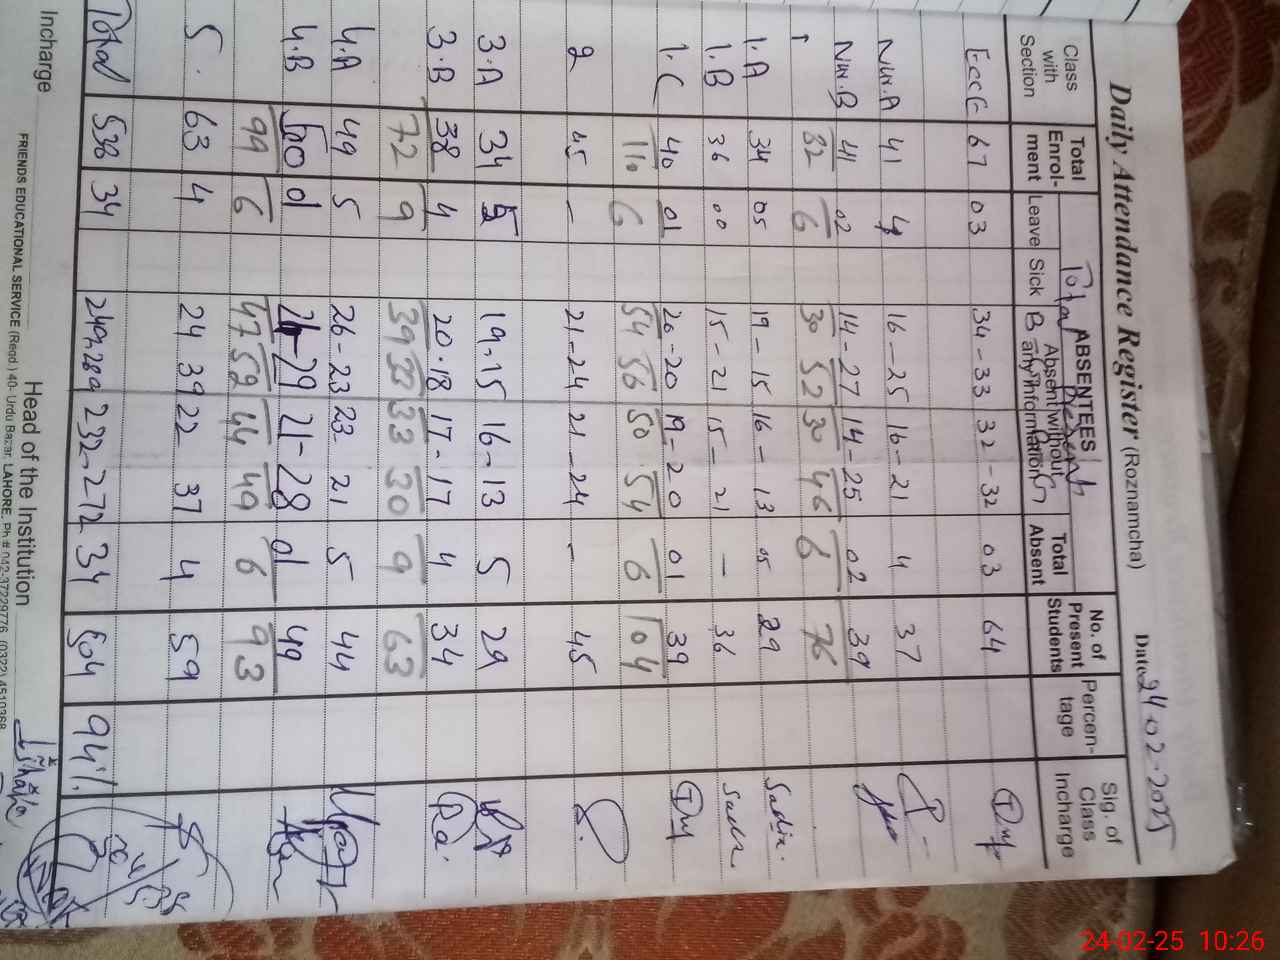 Daily Attendance Register (Roznamcha) Date 24-02-2025
Class with Section Total Enrol-ment ABSENTEES Total Present No. of Present Students Percen-tage Sig. of Class Incharge
Leave Sick Absent without any information B G Total Absent
Ecce 67 03 34-33 32-32 03 64
Nur.A 41 4 16-25 16-21 4 37
Nur.B 41 02 14-27 14-25 02 39
1 82 6 30 52 30 46 6 76
1.A 34 05 19-15 16-13 05 29 Sadia.
1.B 36 00 15-21 15-21 - 36
1.C 40 01 20-20 19-20 01 39
110 6 54 56 50 54 6 104
2 45 - 21-24 21-24 - 45
3.A 34 5 19.15 16-13 5 29
3.B 38 4 20.18 17-17 4 34
72 9 39 33 33 30 9 63
4.A 49 5 26-23 23-21 5 44
4.B 50 01 21-29 21-28 01 49
99 6 47 52 44 49 6 93
5. 63 4 24 39 22 37 4 59
Total 538 34 249,289 232-272 34 504 94%
Incharge Head of the Institution
FRIENDS EDUCATIONAL SERVICE (Regd.) 40- Urdu Bazar, LAHORE, Ph # 042-37229776, (0322) 4510368
24-02-25 10:26